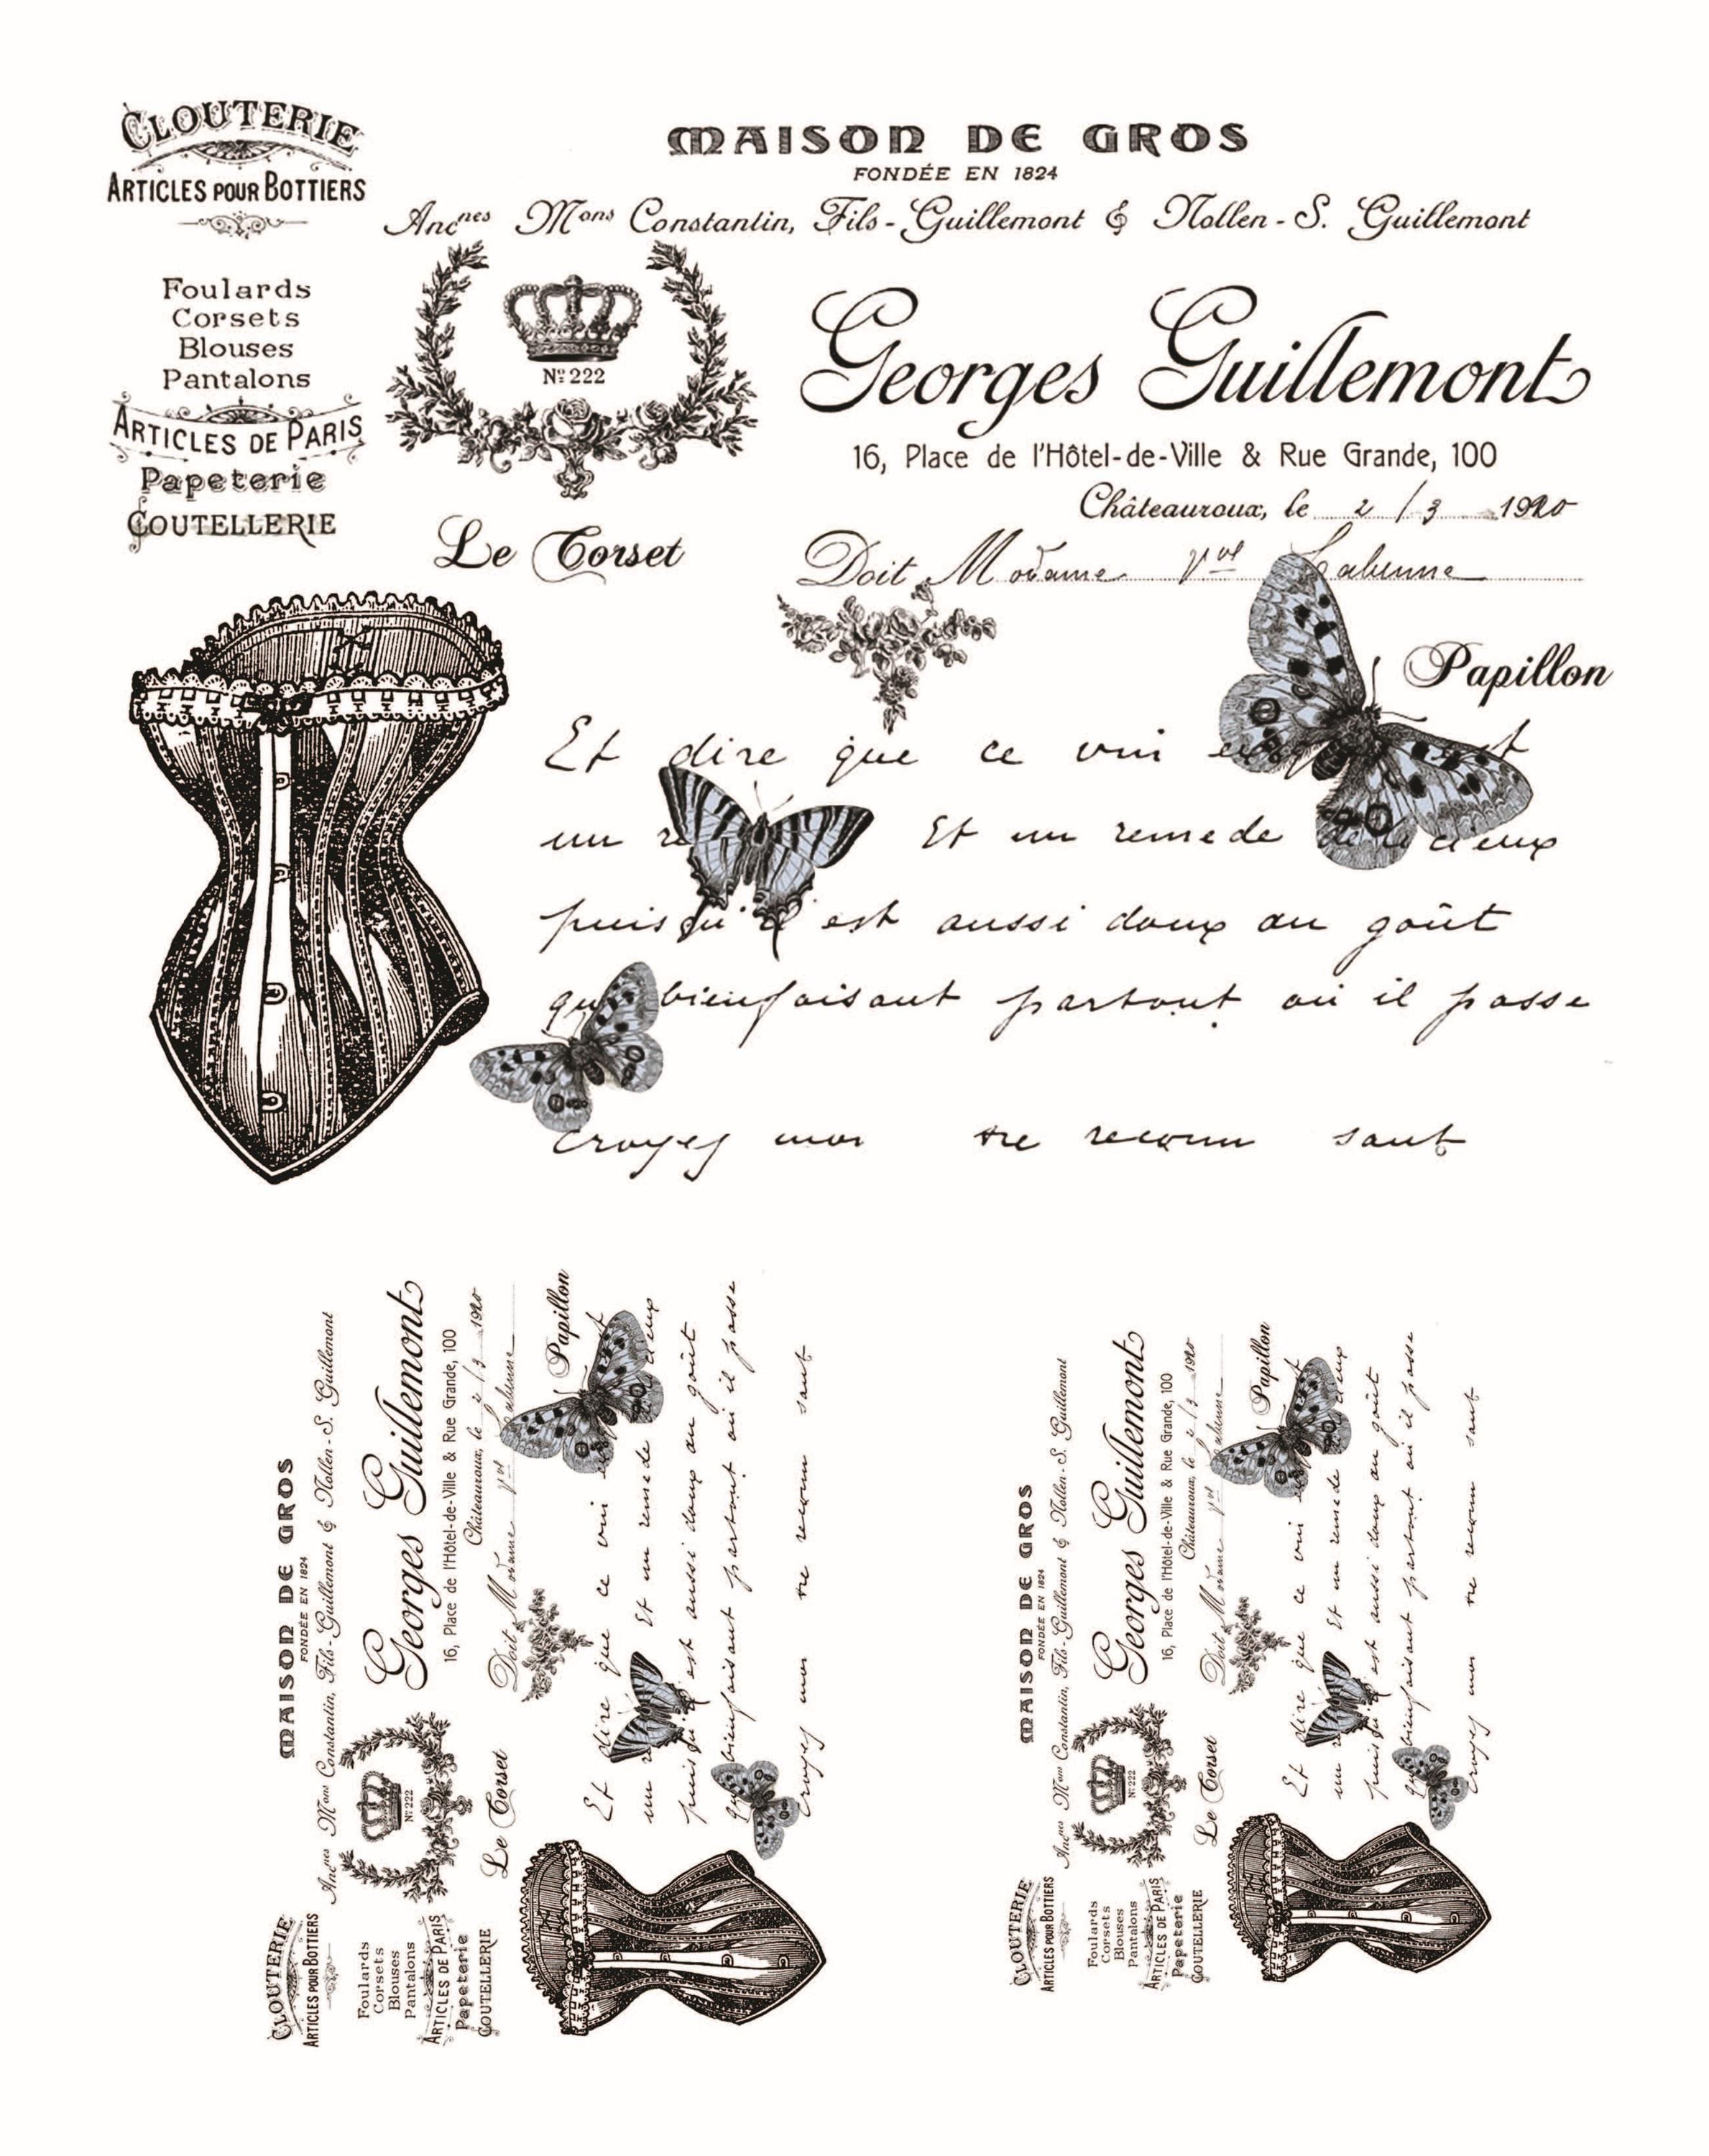 CLOUTERIE
ARTICLES POUR BOTTIERS
MAISON DE GROS
FONDÉE EN 1824
Anc^nes M^ons Constantin, Fils - Guillemont & Nollen - S. Guillemont
Foulards
Corsets
Blouses
Pantalons
ARTICLES DE PARIS
Papeterie
COUTELLERIE
Nº 222
Georges Guillemont
16, Place de l'Hôtel-de-Ville & Rue Grande, 100
Châteauroux, le 2/3 1920
Doit Madame
Le Corset
Papillon
Et dire que ce vin
un Et un remede
puisqu'il est aussi doux au goût
que bienfaisant partout où il passe
croyez moi
MAISON DE GROS
FONDÉE EN 1824
Anc^nes M^ons Constantin, Fils - Guillemont & Nollen - S. Guillemont
Georges Guillemont
16, Place de l'Hôtel-de-Ville & Rue Grande, 100
Châteauroux, le 2/3 1920
Doit Madame
Papillon
Nº 222
Le Corset
CLOUTERIE
ARTICLES POUR BOTTIERS
Foulards
Corsets
Blouses
Pantalons
ARTICLES DE PARIS
Papeterie
COUTELLERIE
Et dire que ce vin
un Et un remede
puisqu'il est aussi doux au goût
que bienfaisant partout où il passe
croyez moi
MAISON DE GROS
FONDÉE EN 1824
Anc^nes M^ons Constantin, Fils - Guillemont & Nollen - S. Guillemont
Georges Guillemont
16, Place de l'Hôtel-de-Ville & Rue Grande, 100
Châteauroux, le 2/3 1920
Doit Madame
Papillon
Nº 222
Le Corset
CLOUTERIE
ARTICLES POUR BOTTIERS
Foulards
Corsets
Blouses
Pantalons
ARTICLES DE PARIS
Papeterie
COUTELLERIE
Et dire que ce vin
un Et un remede
puisqu'il est aussi doux au goût
que bienfaisant partout où il passe
croyez moi